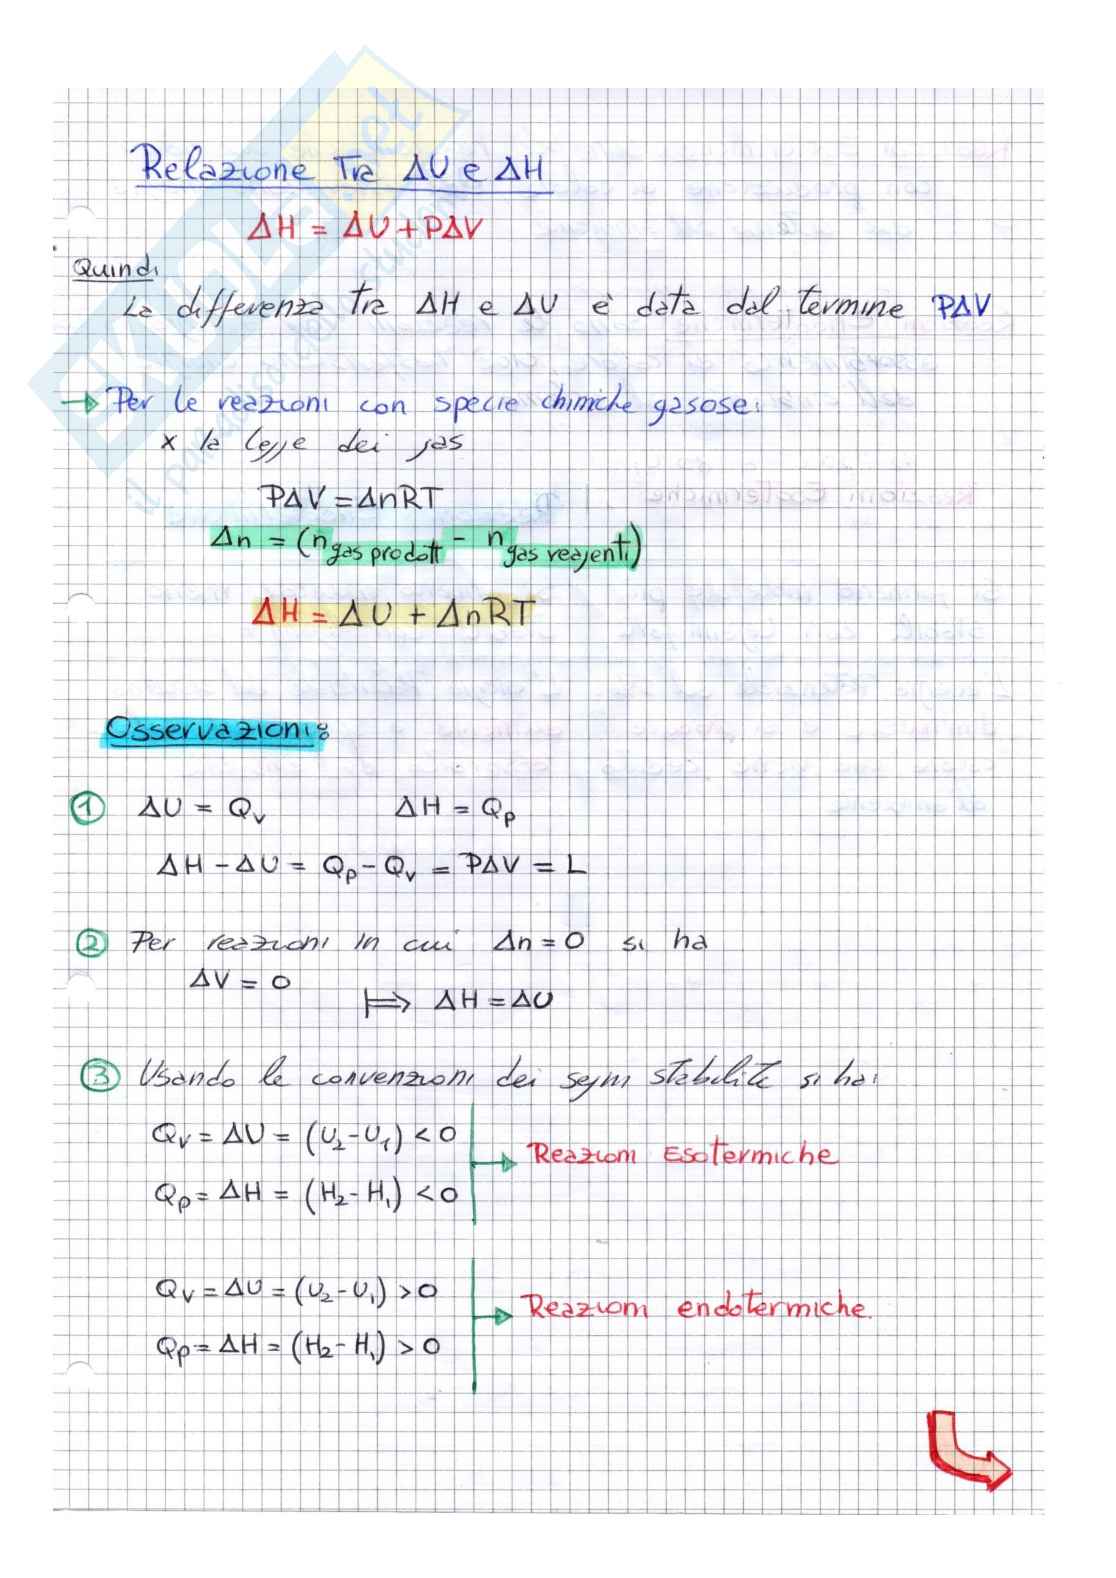 Relazione Tra ΔU e ΔH
ΔH = ΔU + PΔV
Quindi
La differenza tra ΔH e ΔU è data dal termine PΔV
→ Per le reazioni con specie chimiche gasose:
x la legge dei gas
PΔV = ΔnRT
Δn = (n gas prodotti - n gas reagenti)
ΔH = ΔU + ΔnRT
Osservazioni:
① ΔU = Qv ΔH = Qp
ΔH - ΔU = Qp - Qv = PΔV = L
② Per reazioni in cui Δn = 0 si ha
ΔV = 0
⟹ ΔH = ΔU
③ Usando le convenzioni dei segni stabilite si ha:
Qv = ΔU = (U₂ - U₁) < 0
→ Reazioni Esotermiche
Qp = ΔH = (H₂ - H₁) < 0
Qv = ΔU = (U₂ - U₁) > 0
→ Reazioni endotermiche.
Qp = ΔH = (H₂ - H₁) > 0
SKUOLA.net
il paradiso dello studente